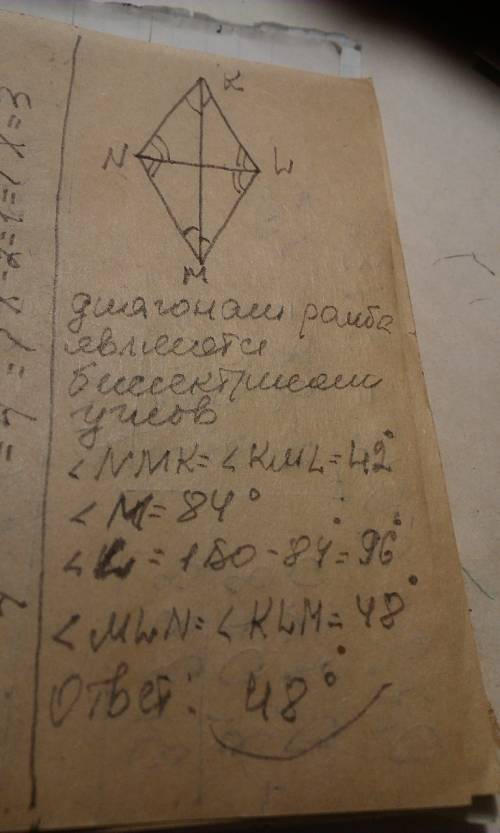 K
N
L
M
диагонали ромба
являются
биссектрисами
углов
∠NMK=∠KML=42°
∠M=84°
∠L=180-84°=96°
∠MLN=∠KLM=48°
Ответ: 48°
=1=1 X=3